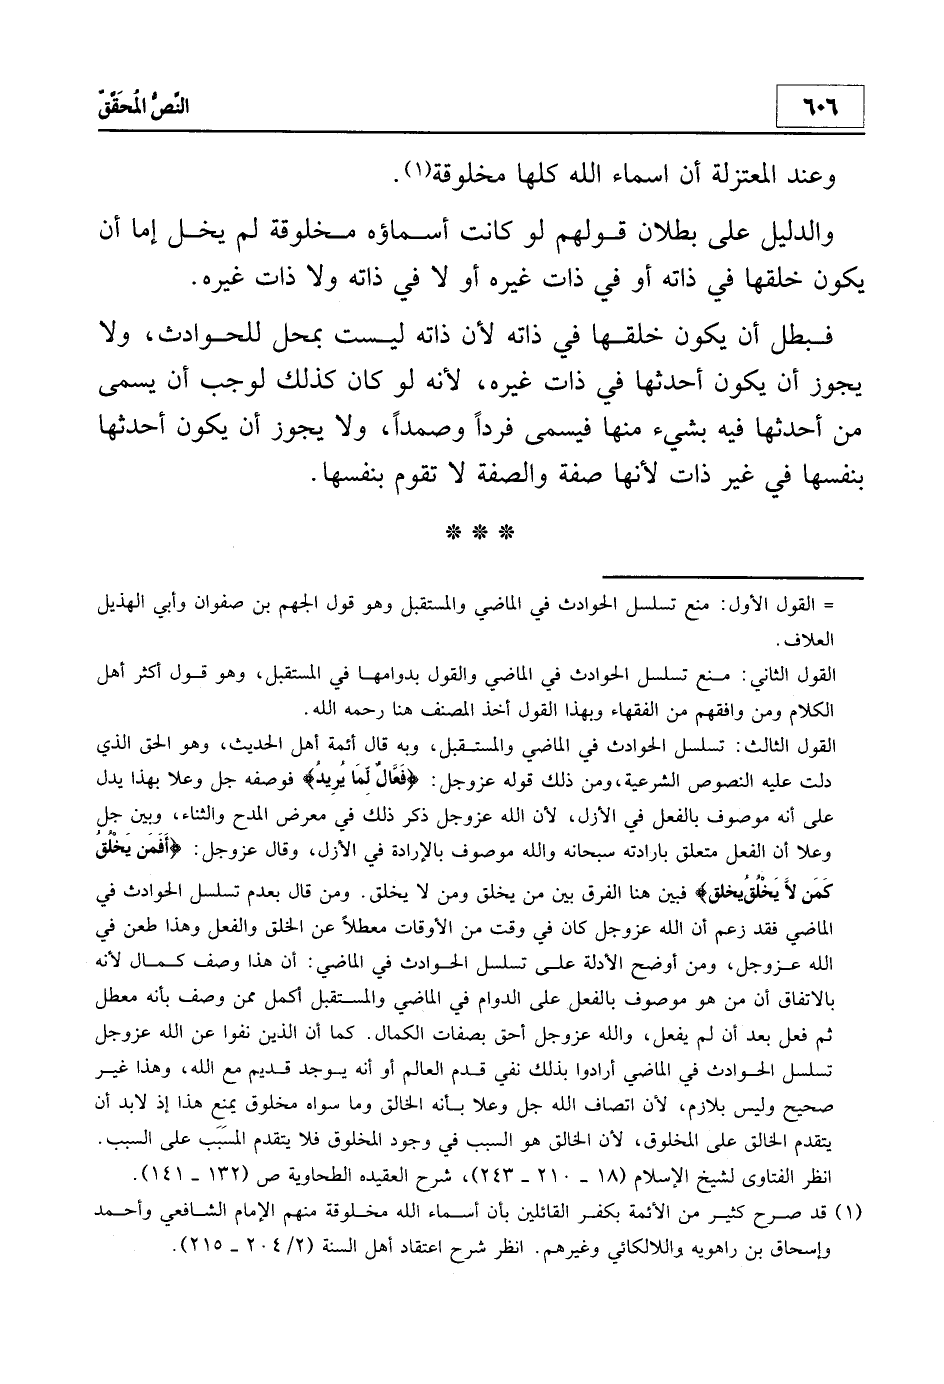 ٦٠٦
النَّصُّ المُحَقَّقْ
وعند المعتزلة أن اسماء الله كلها مخلوقة(١).
والدليل على بطلان قولهم لو كانت أسماؤه مخلوقة لم يخل إما أن
يكون خلقها في ذاته أو في ذات غيره أو لا في ذاته ولا ذات غيره.
فبطل أن يكون خلقها في ذاته لأن ذاته ليست بمحل للحوادث، ولا
يجوز أن يكون أحدثها في ذات غيره، لأنه لو كان كذلك لوجب أن يسمى
من أحدثها فيه بشيء منها فيسمى فرداً وصمداً، ولا يجوز أن يكون أحدثها
بنفسها في غير ذات لأنها صفة والصفة لا تقوم بنفسها.
* * *
= القول الأول: منع تسلسل الحوادث في الماضي والمستقبل وهو قول الجهم بن صفوان وأبي الهذيل
العلاف.
القول الثاني: منع تسلسل الحوادث في الماضي والقول بدوامها في المستقبل، وهو قول أكثر أهل
الكلام ومن وافقهم من الفقهاء وبهذا القول أخذ المصنف هنا رحمه الله.
القول الثالث: تسلسل الحوادث في الماضي والمستقبل، وبه قال أئمة أهل الحديث، وهو الحق الذي
دلت عليه النصوص الشرعية،ومن ذلك قوله عزوجل: ﴿فَعَّالٌ لِّمَا يُرِيدُ﴾ فوصفه جل وعلا بهذا يدل
على أنه موصوف بالفعل في الأزل، لأن الله عزوجل ذكر ذلك في معرض المدح والثناء، وبين جل
وعلا أن الفعل متعلق بارادته سبحانه والله موصوف بالإرادة في الأزل، وقال عزوجل: ﴿أَفَمَن يَخْلُقُ
كَمَن لاَّ يَخْلُقُ يخلق﴾ فبين هنا الفرق بين من يخلق ومن لا يخلق. ومن قال بعدم تسلسل الحوادث في
الماضي فقد زعم أن الله عزوجل كان في وقت من الأوقات معطلاً عن الخلق والفعل وهذا طعن في
الله عزوجل، ومن أوضح الأدلة على تسلسل الحوادث في الماضي: أن هذا وصف كمال لأنه
بالاتفاق أن من هو موصوف بالفعل على الدوام في الماضي والمستقبل أكمل ممن وصف بأنه معطل
ثم فعل بعد أن لم يفعل، والله عزوجل أحق بصفات الكمال. كما أن الذين نفوا عن الله عزوجل
تسلسل الحوادث في الماضي أرادوا بذلك نفي قدم العالم أو أنه يوجد قديم مع الله، وهذا غير
صحيح وليس بلازم، لأن اتصاف الله جل وعلا بأنه الخالق وما سواه مخلوق يمنع هذا إذ لابد أن
يتقدم الخالق على المخلوق، لأن الخالق هو السبب في وجود المخلوق فلا يتقدم المسَبَب على السبب.
انظر الفتاوى لشيخ الإسلام (١٨ ـ ٢١٠ ـ ٢٤٣)، شرح العقيده الطحاوية ص (١٣٢ ـ ١٤١).
(١) قد صرح كثير من الأئمة بكفر القائلين بأن أسماء الله مخلوقة منهم الإمام الشافعي وأحمد
وإسحاق بن راهويه واللالكائي وغيرهم. انظر شرح اعتقاد أهل السنة (٢٠٤/٢ ـ ٢١٥).